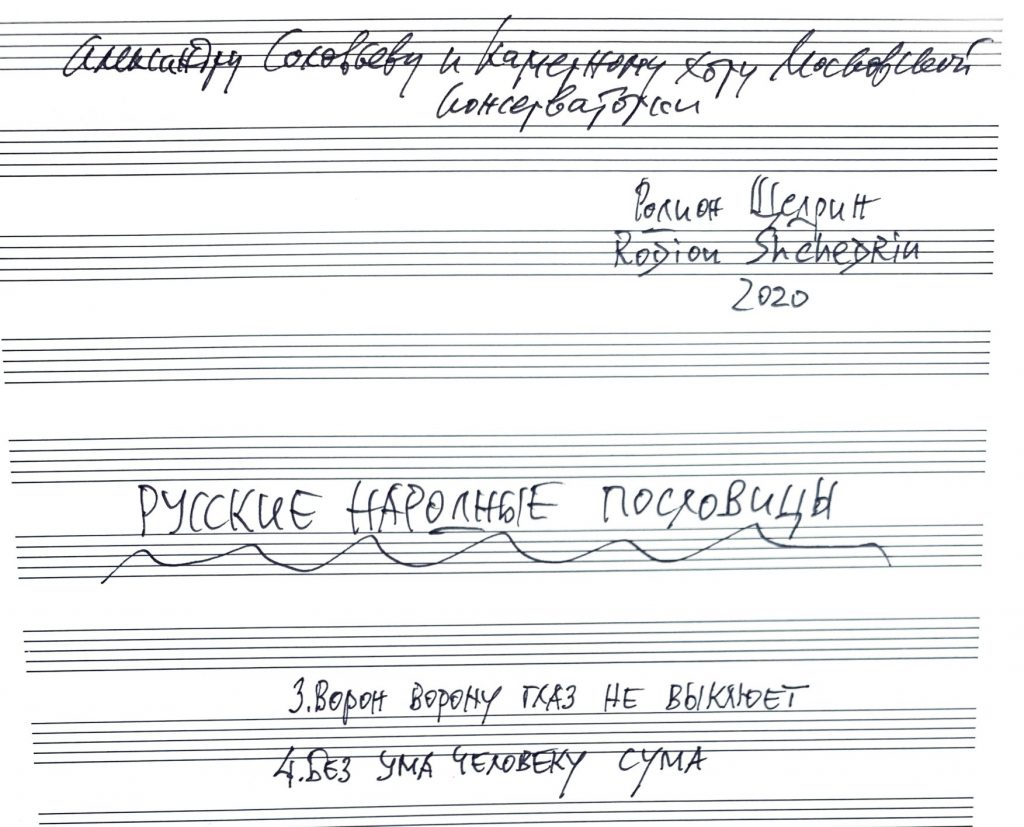 Александру Соловьеву и Камерному хору Московской
Консерватории
Родион Щедрин
Rodion Shchedrin
2020
РУССКИЕ НАРОДНЫЕ ПОСЛОВИЦЫ
3. Ворон ворону глаз не выклюет
4. Без ума человеку сума